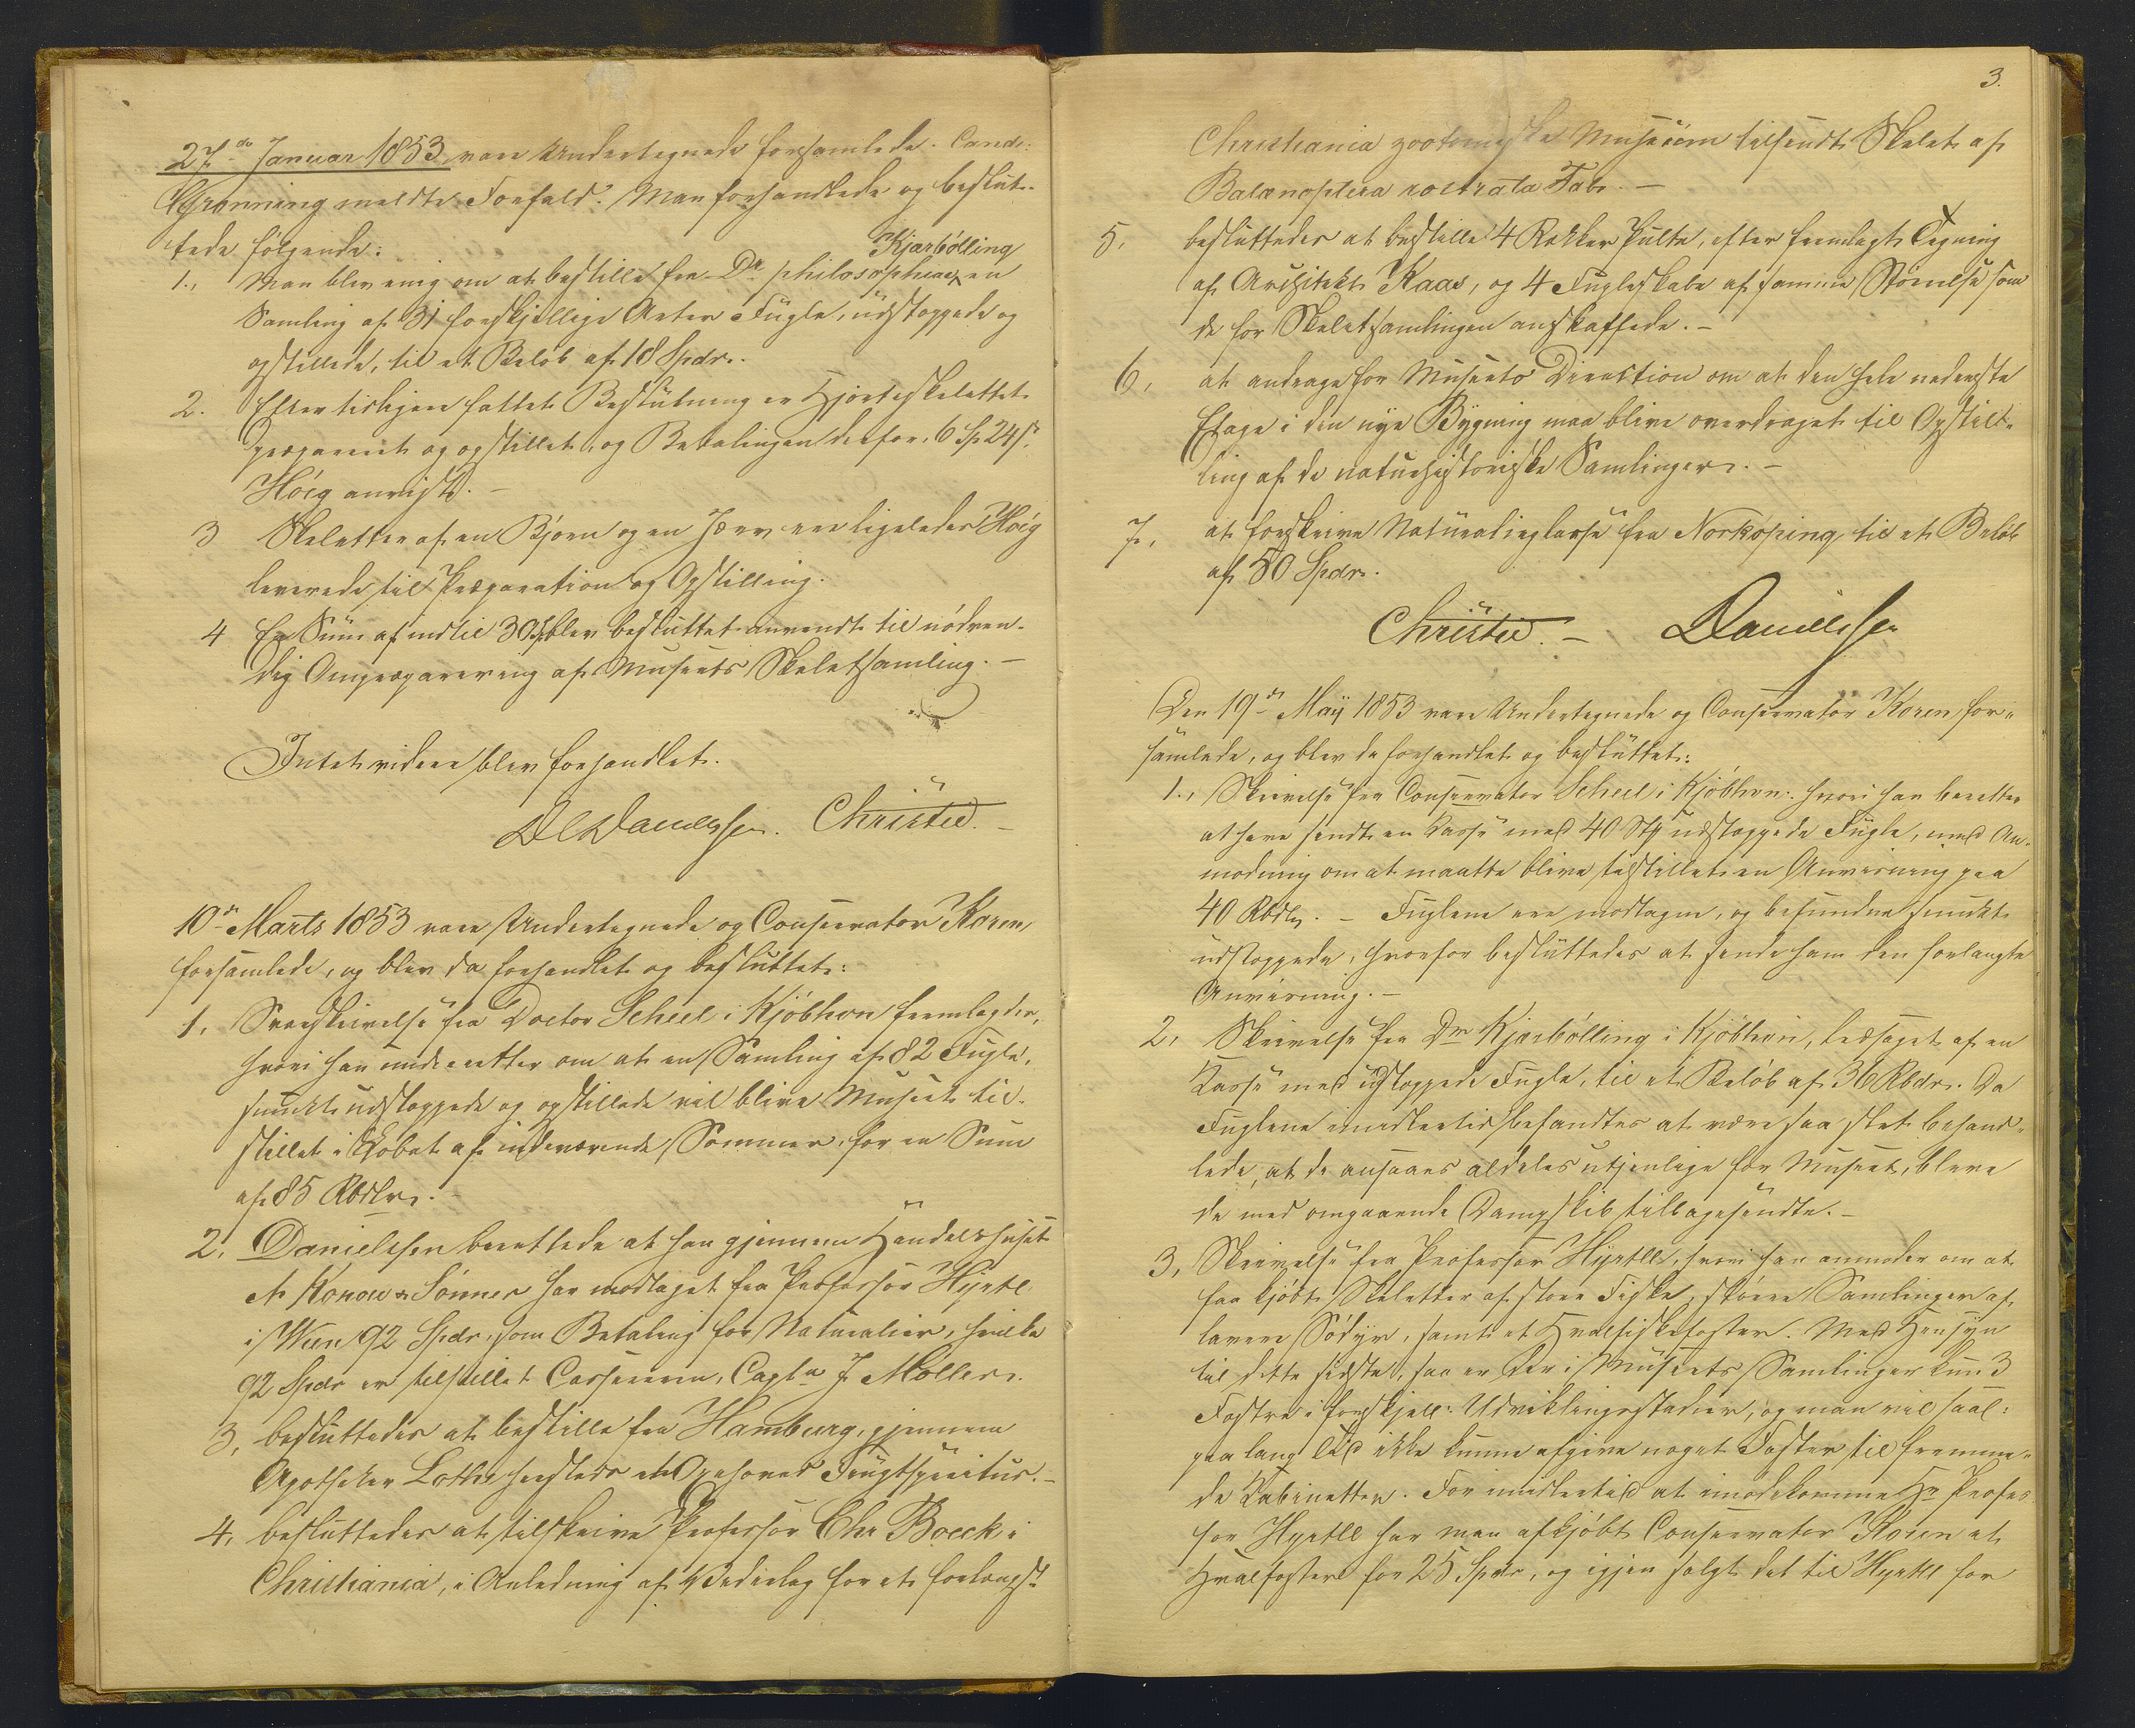 27de Januar 1853 vare Undertegnede forsamlede. Cand:
Grønning meldte Forfald. Man forhandlede og beslut-
tede følgende:
1., Man blev enig om at bestille fra Dr. philosophiae Kjærbølling en
Samling af 31 forskjellige Arter Fugle, udstoppede og
opstillede, til et Beløb af 18 Spdr.
2. Efter tidligere fattet Beslutning er Hjorteskelettet
præpareret og opstillet, og Betalingen derfor, 6 Sp 24 s
Höeg anviist. –
3 Skeletter af en Bjørn og en Jærv ere ligeledes Höeg
leverede til Præparation og Opstilling.
4 En Sum af indtil 30 Sp blev besluttet anvendt til nödven-
dig Ompræparering af Museets Skeletsamling. –
Intet videre blev forhandlet.
DCDanielssen. Christie. –
10de Marts 1853 vare Undertegnede og Conservator Koren
forsamlede, og blev da forhandlet og besluttet:
1, Svarskrivelse fra Doctor Scheel i Kjöbhvn fremlagdes,
hvori han underretter om at en Samling af 82 Fugle,
smukt udstoppede og opstillede vil blive Museet til-
stillet i Löbet af indeværende Sommer, for en Sum
af 85 Rbdlr. –
2, Danielssen berettede at han gjennem Handelshuset
A Konow & Sönner har modtaget fra Professor Hyrtl
i Wien 92 Spdr, som Betaling for Naturalier, hvilke
92 Spdr er tilstillet Cassereren, Captn J. Möller.
3, besluttedes at bestille fra Hamburg, gjennem
Apotheker Lothe hersteds et Oxehoved Frugtspiritus. –
4, besluttedes at tilskrive Professor Chr Boeck i
Christiania, i Anledning af Vederlag for et forlængst
3.
Christiania zootomiske Museum tilsendt Skelet af
Balænoptera rostrata Fabr. –
5, besluttedes at bestille 4 Rækker Pulte, efter fremlagt Tegning
af Architekt Kaas, og 4 Fugleskabe af samme Størrelse som
de for Skeletsamlingen anskaffede. –
6, at andrage for Museets Direction om at den hele nederste
Etage i den nye Bygning maa blive overdraget til Opstil-
ling af de naturhistoriske Samlinger. –
7, at forskrive Naturalieglasse fra Norköping til et Beløb
af 50 Spdr.
Christie. – Danielssen
Den 19de May 1853 vare Undertegnede og Conservator Koren for-
samlede, og blev da forhandlet og besluttet:
1., Skrivelse fra Conservator Scheel i Kjöbhvn: hvori han beretter
at have sendt en Kasse med 40 Stk udstoppede Fugle, med An-
modning om at maatte blive tilstillet en Anvisning paa
40 Rbdlr. – Fuglene ere modtagne, og befundne smukt
udstoppede, hvorfor besluttedes at sende ham den forlangte
Anvisning. –
2, Skrivelse fra Dr Kjærbölling i Kjöbhvn, ledsaget af en
Kasse med udstoppede Fugle, til et Beløb af 36 Rbdr. Da
Fuglene imidlertid befandtes at være saa slet behand-
lede, at de ansaaes aldeles utjenlige for Museet, bleve
de med omgaaende Dampskib tilbagesendte. –
3, Skrivelse fra Professor Hyrtll, hvori han anmoder om at
faa kjöbt Skeletter af store Fiske, större Samlinger af
lavere Södyr, samt et Hvalfiskefoster. Med Hensyn
til dette sidste, saa er der i Museets Samlinger kun 3
Fostre i forskjell: Udviklingsstadier, og man vil saal:
paa lang Tid ikke kunne afgive noget Foster til fremme-
de Kabinetter. For imidlertid at imødekomme Hr Profes-
sor Hyrtll har man afkjöbt Conservator Koren et
Hvalfoster for 25 Spdr, og igjen solgt det til Hyrtll for